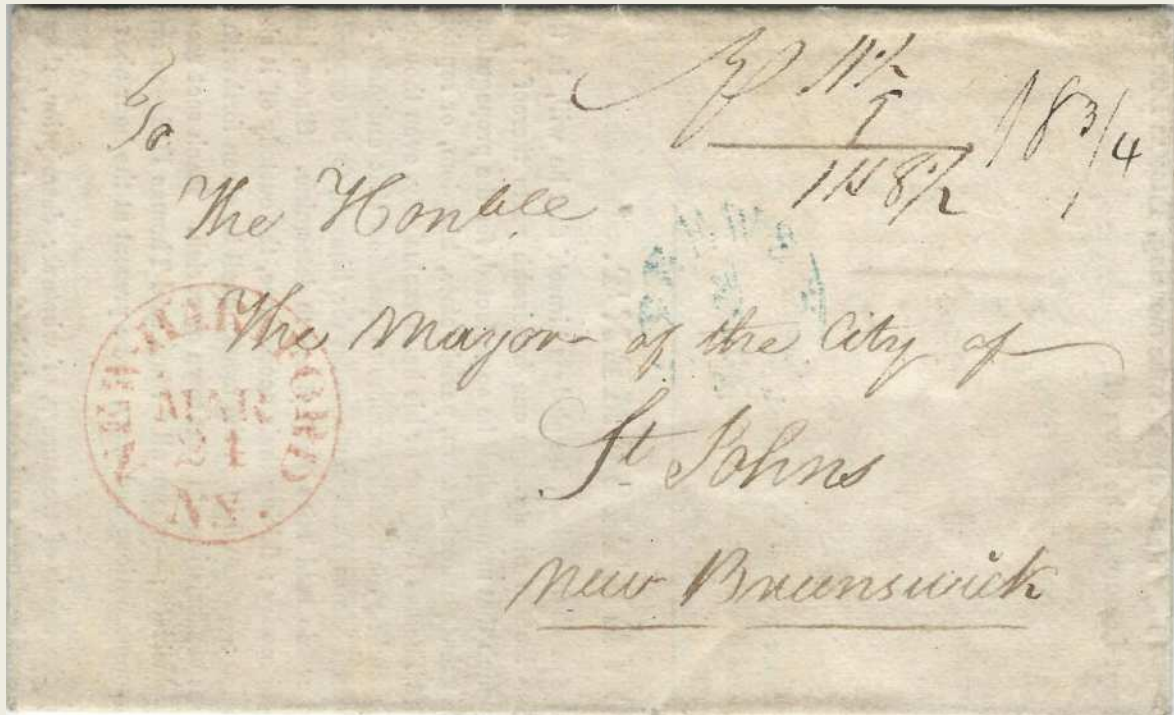 To
11½
7
1/6 8½
18 3/4
The Honble
The Mayor of the City of
St. Johns
New Brunswick
NEW-HARTFORD
MAR
21
N.Y.